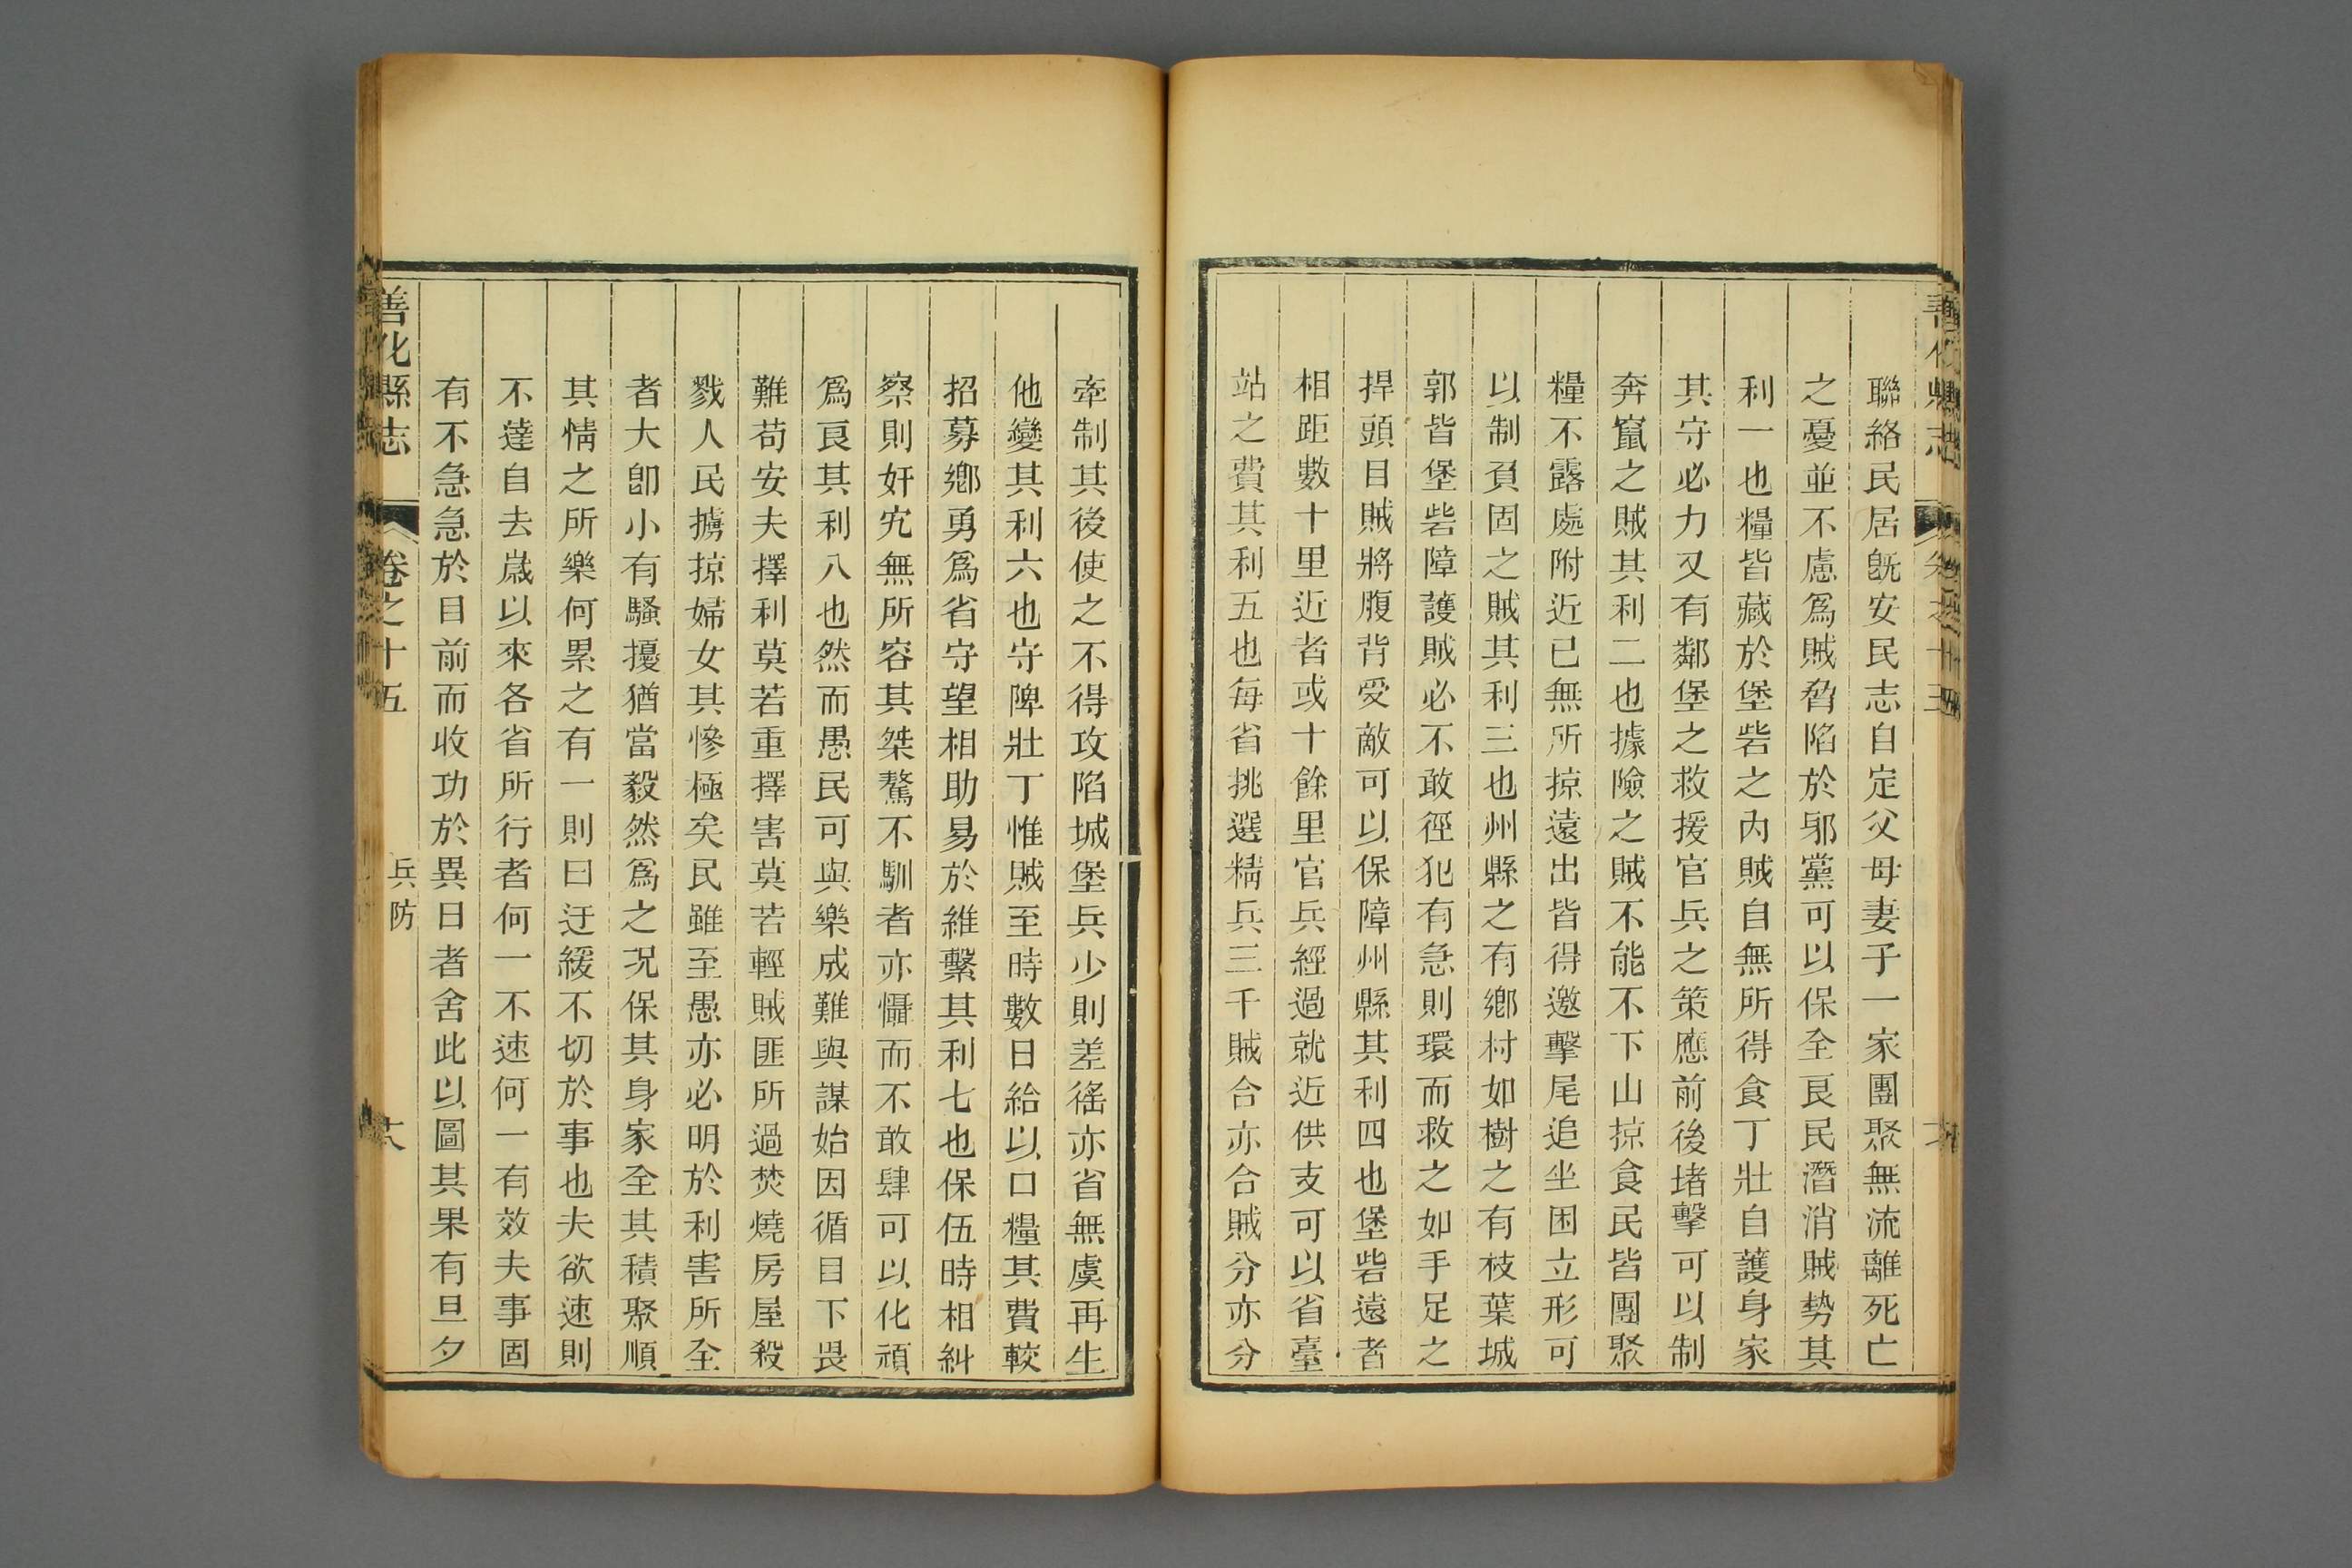 聯絡民居旣安民志自定父母妻子一家團聚無流離死亡
之憂並不慮爲賊脅陷於邪黨可以保全良民潛消賊勢其
利一也糧皆藏於堡砦之內賊自無所得食丁壯自護身家
其守必力又有鄰堡之救援官兵之策應前後堵擊可以制
奔竄之賊其利二也據險之賊不能不下山掠食民皆團聚
糧不露處附近已無所掠遠出皆得邀擊尾追坐困立形可
以制負固之賊其利三也州縣之有鄉村如樹之有枝葉城
郭皆堡砦障護賊必不敢徑犯有急則環而救之如手足之
捍頭目賊將腹背受敵可以保障州縣其利四也堡砦遠者
相距數十里近者或十餘里官兵經過就近供支可以省臺
站之費其利五也每省挑選精兵三千賊合亦合賊分亦分
牽制其後使之不得攻陷城堡兵少則差徭亦省無虞再生
他變其利六也守陴壯丁惟賊至時數日給以口糧其費較
招募鄉勇爲省守望相助易於維繫其利七也保伍時相糾
察則奸宄無所容其桀驁不馴者亦懾而不敢肆可以化頑
爲良其利八也然而愚民可與樂成難與謀始因循目下畏
難苟安夫擇利莫若重擇害莫若輕賊匪所過焚燒房屋殺
戮人民擄掠婦女其慘極矣民雖至愚亦必明於利害所全
者大卽小有騷擾猶當毅然爲之況保其身家全其積聚順
其情之所樂何累之有一則曰迂緩不切於事也夫欲速則
不達自去歲以來各省所行者何一不速何一有效夫事固
有不急急於目前而收功於異日者舍此以圖其果有旦夕
善化縣志
卷之十五
兵防